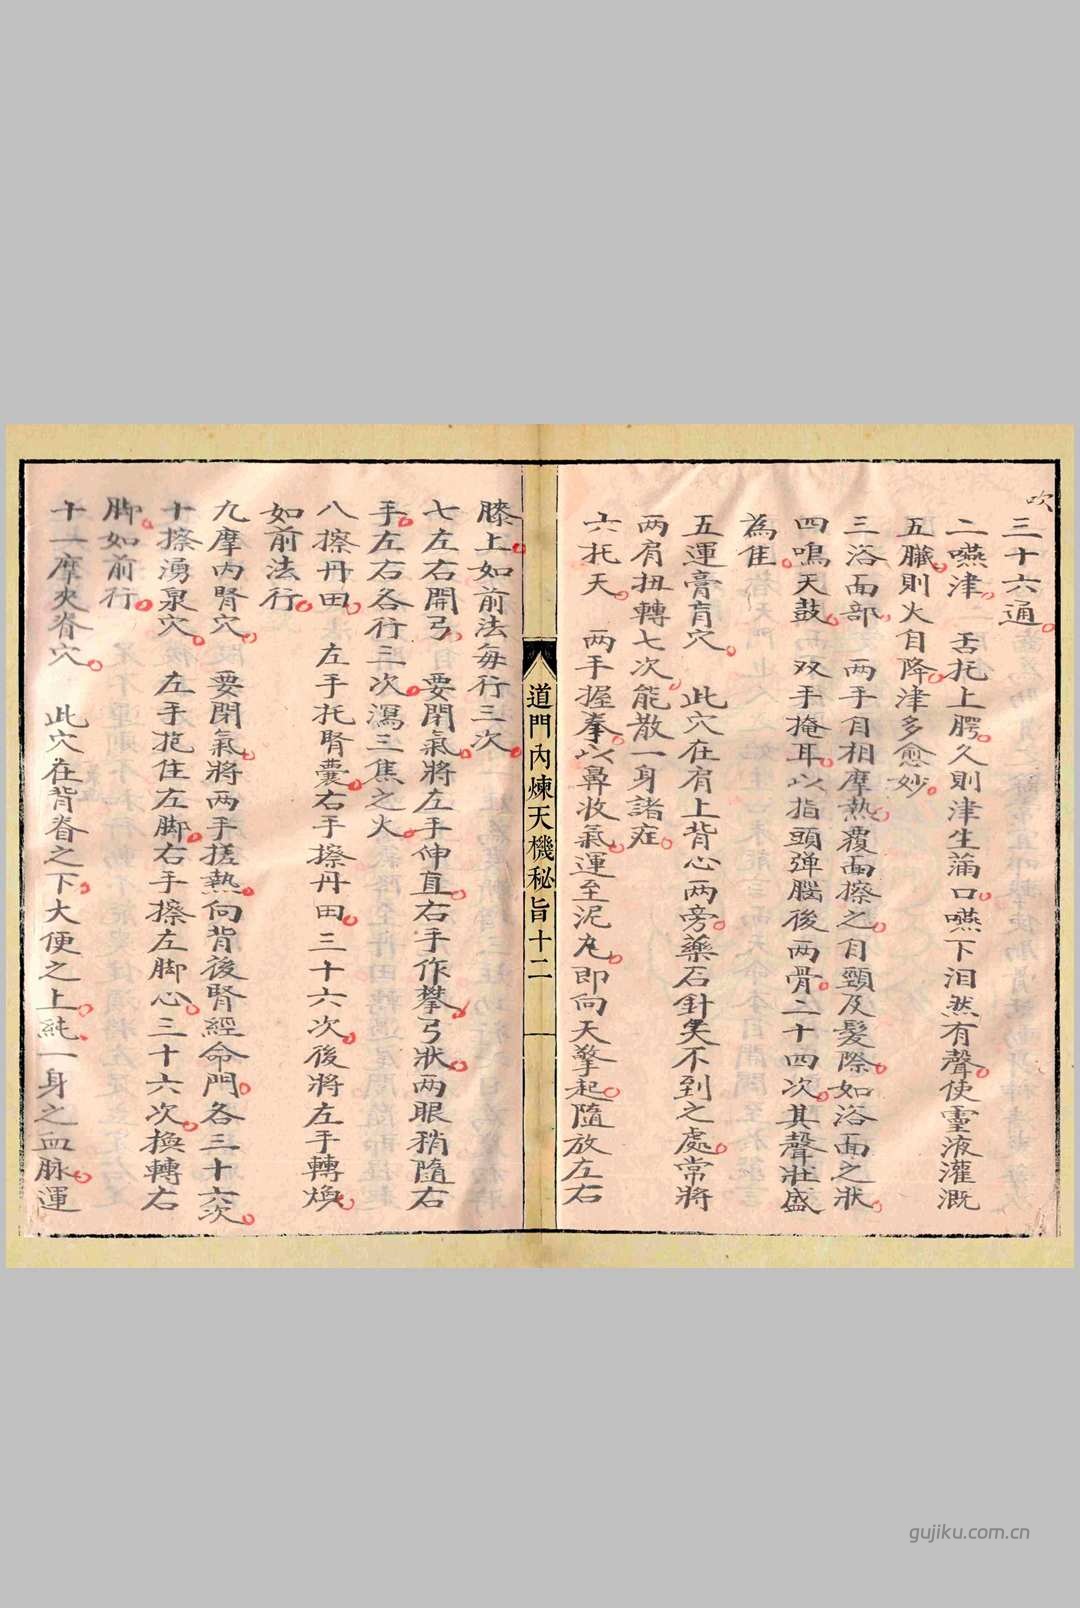 吹
三十六通
二嚥津　舌托上腭久則津生蒲口嚥下汨然有聲使靈液灌溉
五臟則火自降津多愈妙
三浴面部　两手自相摩熱覆面擦之自頸及髮際如浴面之狀
四鳴天鼓　双手掩耳以指頭弹腦後两骨二十四次其聲壯盛
為佳
五運膏肓穴　此穴在肩上背心两旁藥石針灸不到之處常將
两肩扭轉七次能散一身諸症
六托天　两手握拳以鼻收氣運至泥丸即向天擎起隨放左右
道門內煉天機秘旨十二
膝上如前法每行三次
七左右開弓　要閉氣將左手伸直右手作攀弓狀两眼稍隨右
手左右各行三次瀉三焦之火
八擦丹田　左手托腎囊右手擦丹田三十六次後將左手轉煥
如前法行
九摩內腎穴　要閉氣將两手搓熱向背後腎經命門各三十六次
十擦湧泉穴　左手抱住左脚右手擦左脚心三十六次換轉右
脚如前行
十一摩夾脊穴　此穴在背脊之下大便之上純一身之血脉運
gujiku.com.cn